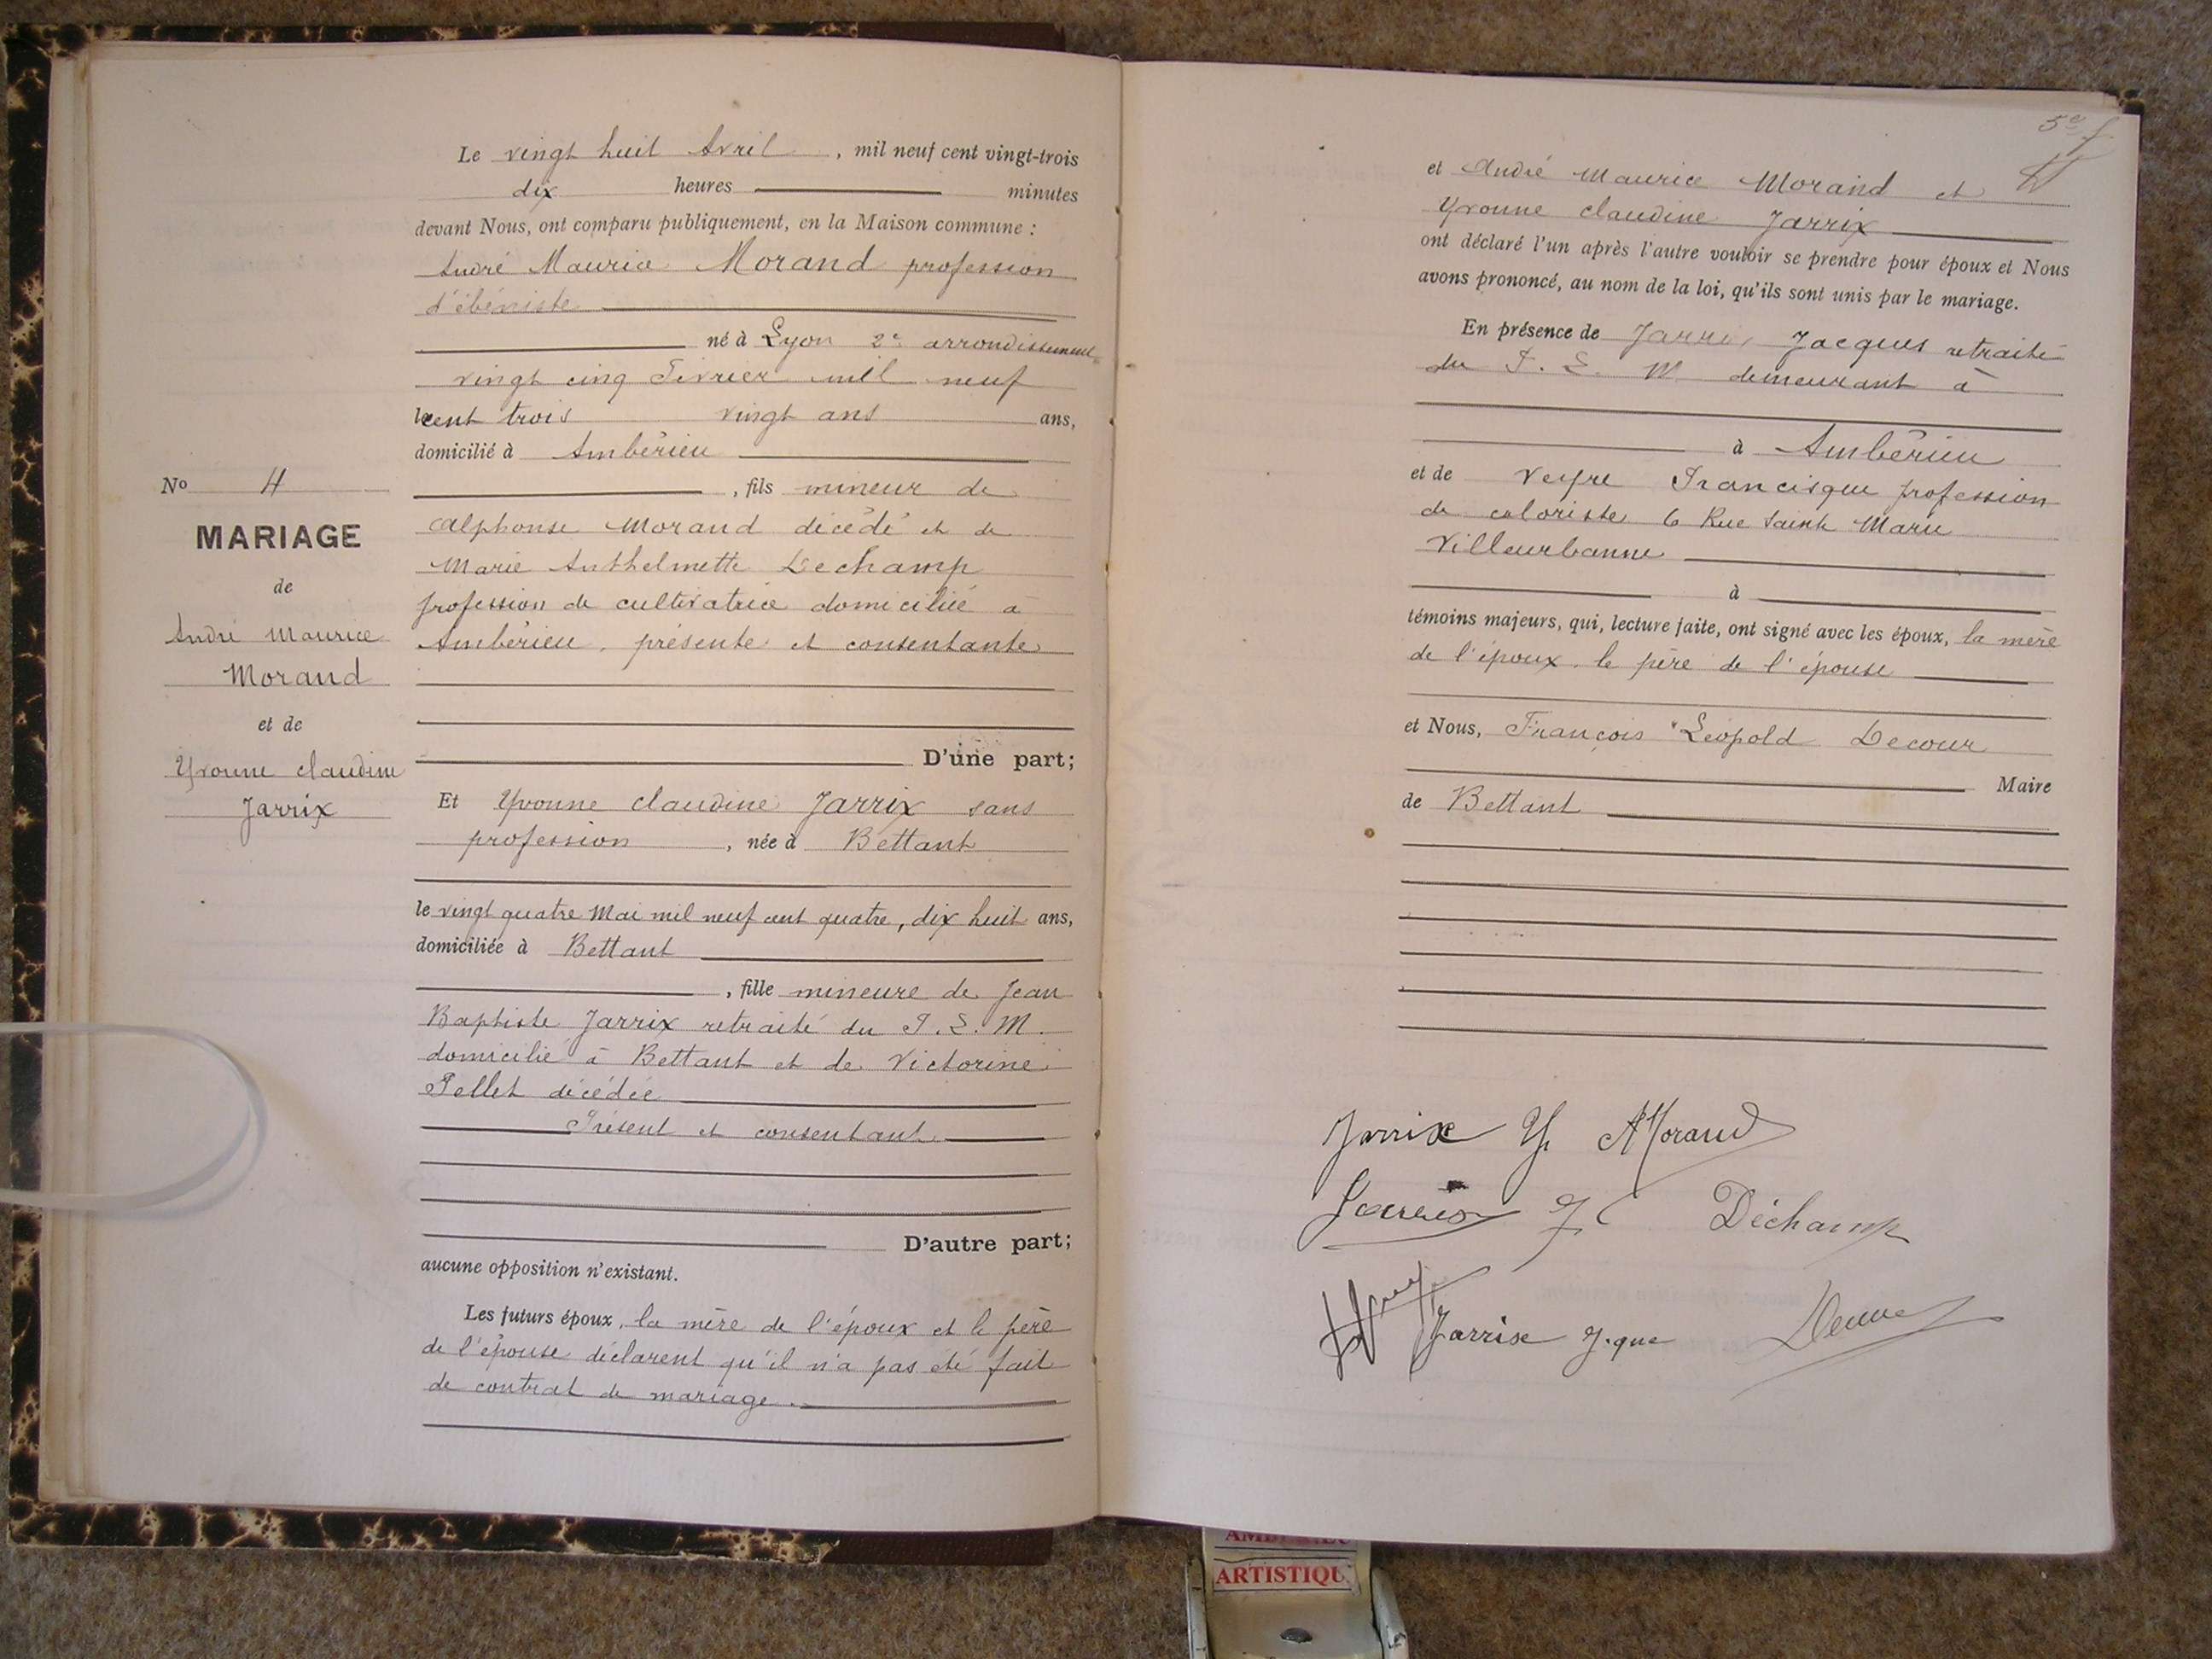 Le vingt huit Avril, mil neuf cent vingt-trois
dix heures minutes
devant Nous, ont comparu publiquement, en la Maison commune :
André Maurice Morand profession
d'ébéniste
né à Lyon 2e arrondissement
vingt cinq Février mil neuf
le cent trois vingt ans ans,
domicilié à Ambérieu
, fils mineur de
Alphonse Morand décédé et de
Marie Anthelmette Dechamp
profession de cultivatrice domiciliée à
Ambérieu, présente et consentante
D'une part;
Et Yvonne Claudine Jarrix sans
profession, née à Bettant
le vingt quatre Mai mil neuf cent quatre, dix huit ans,
domiciliée à Bettant
, fille mineure de Jean
Baptiste Jarrix retraité du P. L. M.
domicilié à Bettant et de Victorine
Pellet décédée
Présent et consentant.
D'autre part;
aucune opposition n'existant.
Les futurs époux, la mère de l'époux et le père
de l'épouse déclarent qu'il n'a pas été fait
de contrat de mariage.
No 4
MARIAGE
de
André Maurice
Morand
et de
Yvonne Claudine
Jarrix
5e f
et André Maurice Morand et
Yvonne Claudine Jarrix
ont déclaré l'un après l'autre vouloir se prendre pour époux et Nous
avons prononcé, au nom de la loi, qu'ils sont unis par le mariage.
En présence de Jarrix Jacques retraité
du P. L. M demeurant à
à Ambérieu
et de Veyre Francisque profession
de coloriste 6 Rue Sainte Marie
Villeurbanne
à
témoins majeurs, qui, lecture faite, ont signé avec les époux, la mère
de l'époux, le père de l'épouse
et Nous, François Léopold Decour
Maire
de Bettant
Jarrix Y. AMorand
Jarrix J Déchamp
Jarrix J.que
ARTISTIQU